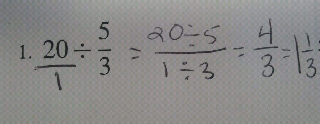 1. 20/1 ÷ 5/3 = 20÷5/1÷3 = 4/3 = 1 1/3